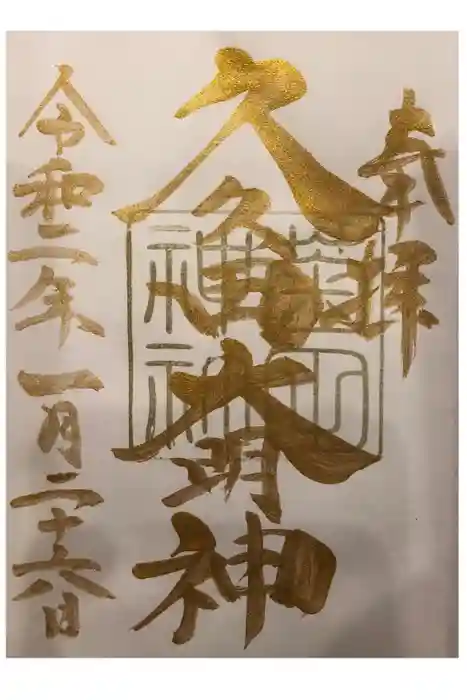 奉拝
久
大明神
神社
令和二年一月二十六日